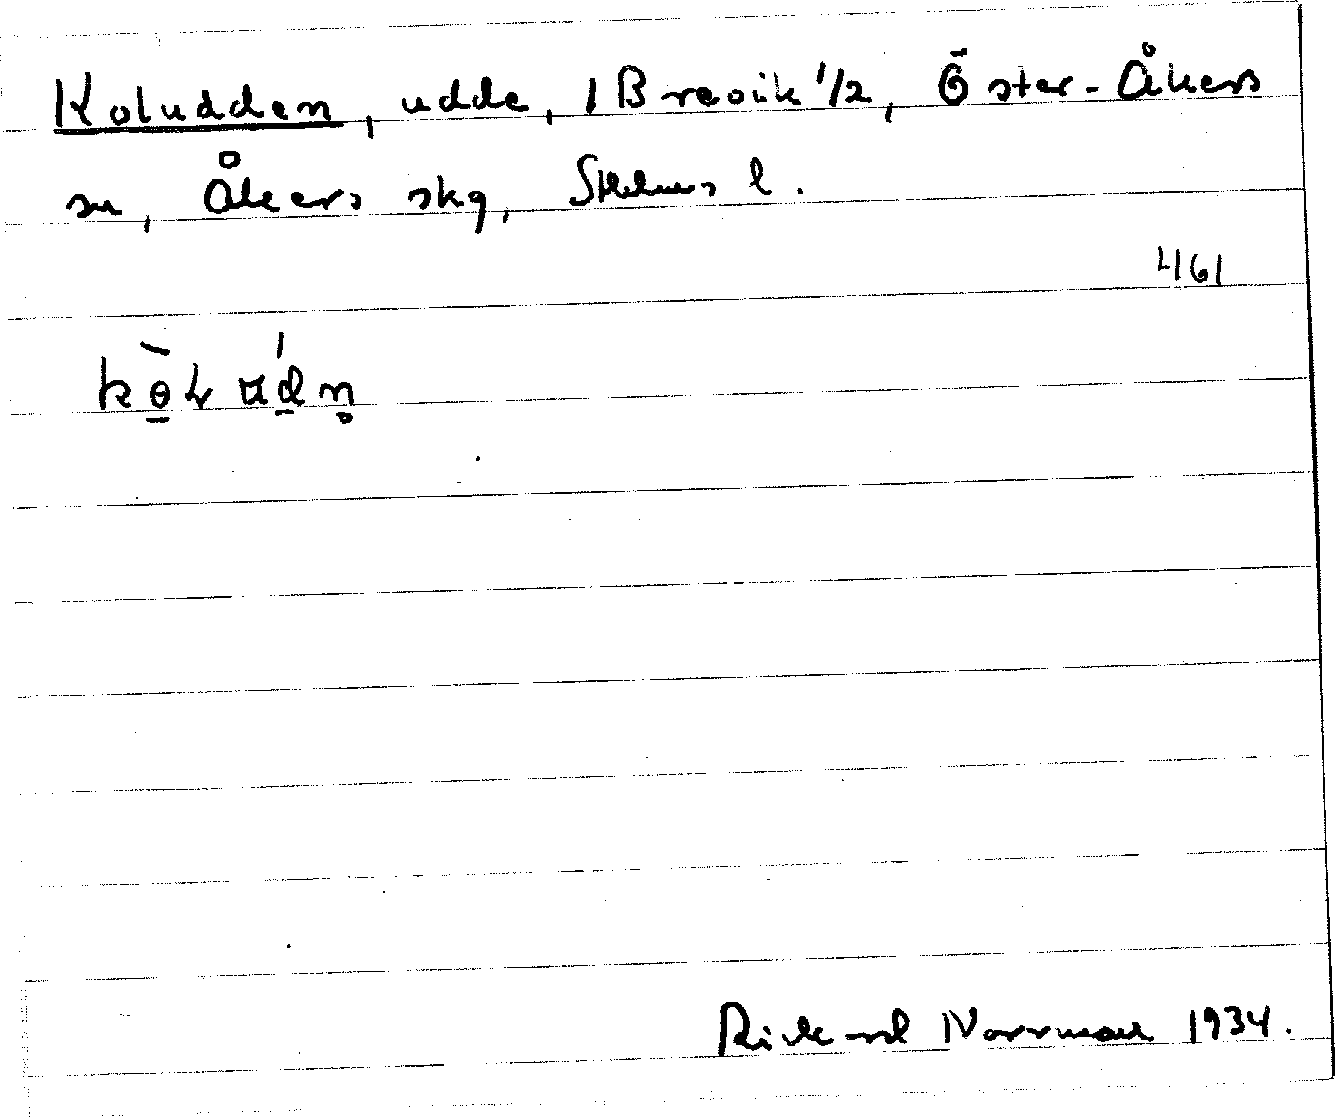 Koludden, udde, 1 Brevik 1/2, Öster-Åkers
sn, Åkers skg, Sthlms l.
461
Rickard Norrman 1934.